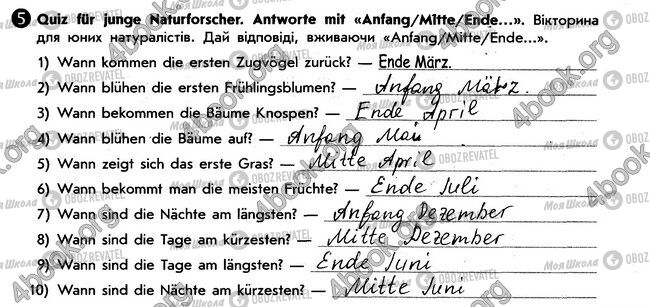 5 Quiz für junge Naturforscher. Antworte mit «Anfang/Mitte/Ende...». Вікторина
для юних натуралістів. Дай відповіді, вживаючи «Anfang/Mitte/Ende...».
1) Wann kommen die ersten Zugvögel zurück? — Ende März.
2) Wann blühen die ersten Frühlingsblumen? — Anfang März.
3) Wann bekommen die Bäume Knospen? — Ende April
4) Wann blühen die Bäume auf? — Anfang Mai
5) Wann zeigt sich das erste Gras? — Mitte April
6) Wann bekommt man die meisten Früchte? — Ende Juli
7) Wann sind die Nächte am längsten? — Anfang Dezember
8) Wann sind die Tage am kürzesten? — Mitte Dezember
9) Wann sind die Tage am längsten? — Ende Juni
10) Wann sind die Nächte am kürzesten? — Mitte Juni